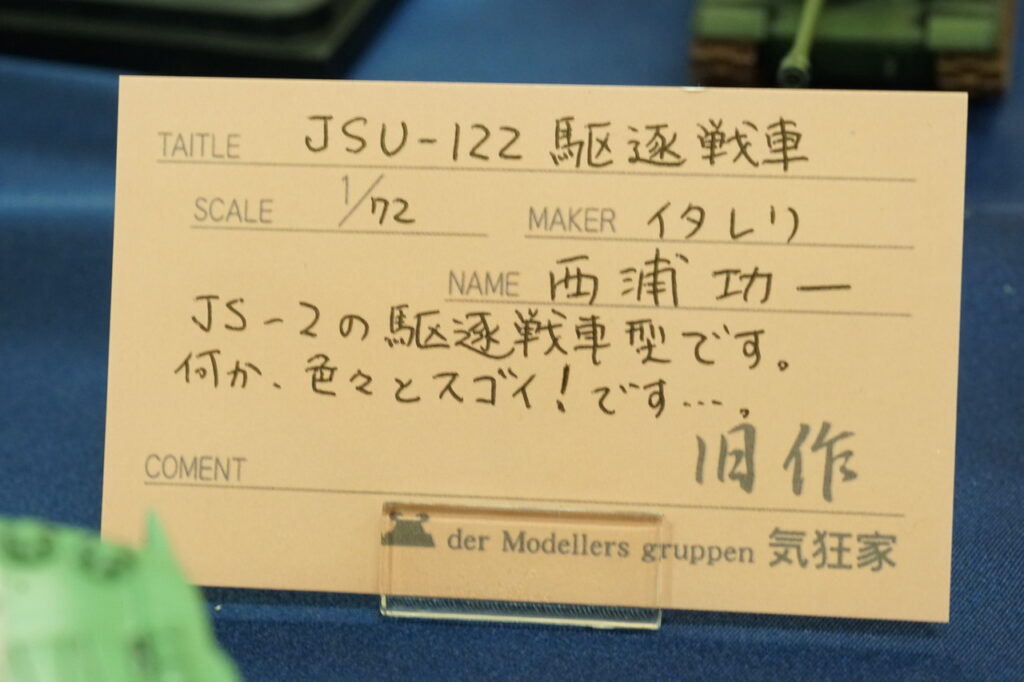 TAITLE JSU-122 駆逐戦車
SCALE 1/72 MAKER イタレリ
NAME 西浦 功一
JS-2の駆逐戦車型です。
何か、色々とスゴイ!です…。
旧作
COMENT
der Modellers gruppen 気狂家